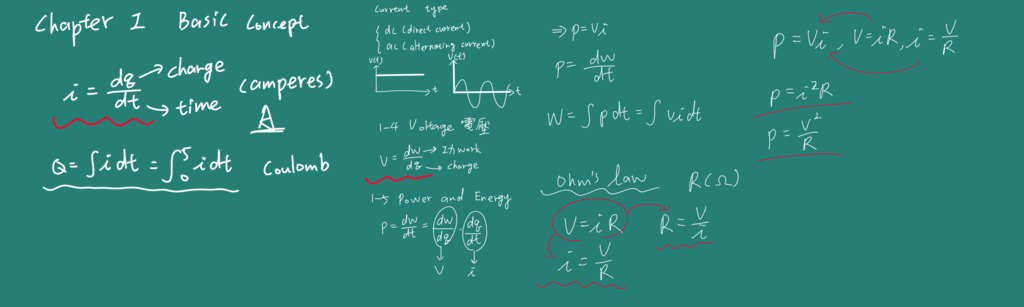 Chapter 1 Basic Concept
i = dq/dt → charge → time (amperes) A
Q = ∫ i dt = ∫₀⁵ i dt Coulomb
Current type
{ dc (direct current)
ac (alternating current)
V(t) t V(t) t
1-4 Voltage 電壓
V = dw/dq → 功 work → charge
1-5 Power and Energy
P = dw/dt = dw/dq · dq/dt
V i
⇒ p = Vi
p = dw/dt
W = ∫ p dt = ∫ vi dt
Ohm's law R(Ω)
V = iR R = V/i
i = V/R
P = Vi, V = iR, i = V/R
P = i²R
P = V²/R